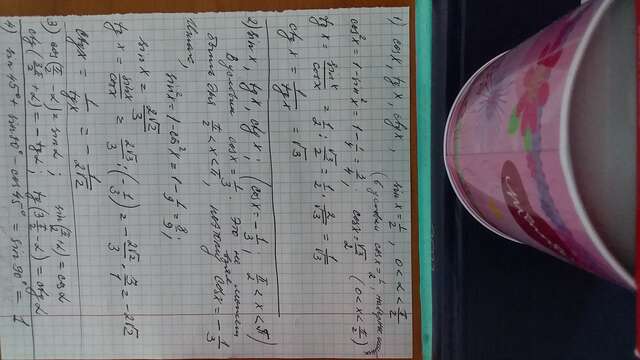 1) cos x, tg x, ctg x, sin x = 1/2, 0 < α < π/2
(в условии cos x = 1/2, наверное
cos²x = 1 - sin²x = 1 - 1/4 = 3/4. cos x = √3/2 (0 < x < π/2)
tg x = sin x/cos x = 1/2 : √3/2 = 1/2 · 2/√3 = 1/√3
ctg x = 1/tg x = √3
2) sin x, tg x, ctg x; (cos x = -1/3; π/2 < x < π)
В условии cos x = 1/3. Это не может
быть для π/2 < x < π, поэтому cos x = -1/3
Итак,
sin²x = 1 - cos²x = 1 - 1/9 = 8/9;
sin x = 2√2/3
tg x = sin x/cos x = 2√2/3 : (-1/3) = -2√2/3 · 3/1 = -2√2
ctg x = 1/tg x = -1/2√2
3) cos(π/2 - α) = sin α; sin(π/2 + α) = cos α
ctg(3π/2 + α) = -tg α; tg(3π/2 - α) = ctg α
4) sin 45° + sin 40° cos 45° = sin 90° = 1